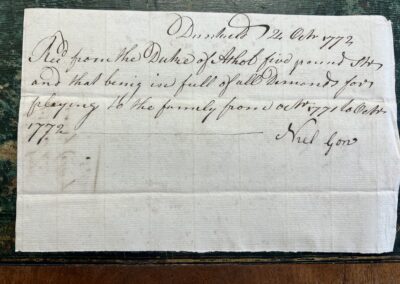 Dunkeld 24 Octr 1772
Recd from the Duke of Athol five pound Str
and that being in full of all Demands for
playing to the family from octr 1771 to Octr
1772
Niel Gow